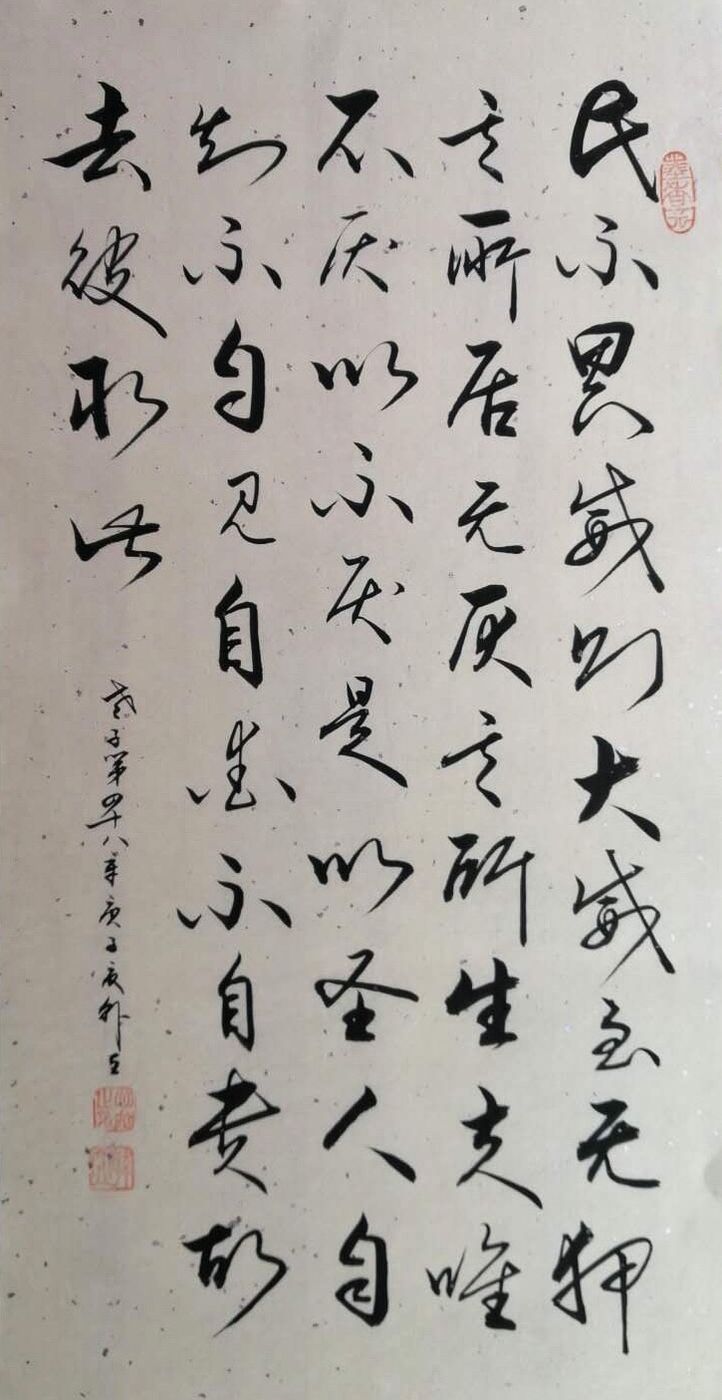 民不畏威则大威至无狎
其所居无厌其所生夫唯
不厌以不厌是以圣人自
知不自见自爱不自贵故
去彼取此
老子第四十八章庚子